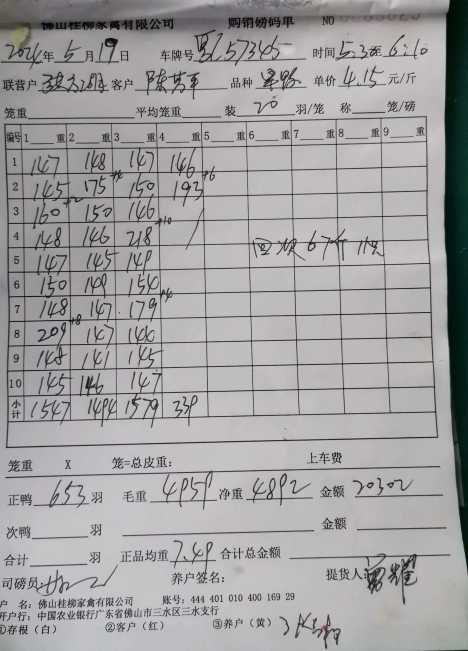 佛山桂柳家禽有限公司 购销磅码单 NO
2024年5月19日 车牌号 57345 时间5.30至6:10
联营户 客户 陈 平 品种 单价4.15元/斤
笼重 平均笼重 装20羽/笼 称 笼/磅
编号 1 重 2 重 3 重 4 重 5 重 6 重 7 重 8 重 9 重
1 147 148 147 146
2 145 175 +4 150 193 +6
3 160 +2 150 146
4 148 146 218 +10 /
5 147 145 149 回 67斤 11只
6 150 149 154
7 148 147 179 +4
8 209 +8 147 146
9 148 141 145
10 145 146 147
小计 1547 1494 1579 339
笼重 X 笼=总皮重: 上车费
正鸭 653 羽 毛重 4959 净重 4892 金额 20302
次鸭 羽 金额
合计 羽 正品均重 7.49 合计总金额
司磅员 养户签名: 提货人 耀
户 名: 佛山桂柳家禽有限公司 账号: 444 401 010 400 169 29
开户行: 中国农业银行广东省佛山市三水区三水支行
①存根（白） ②客户（红） ③养户（黄）